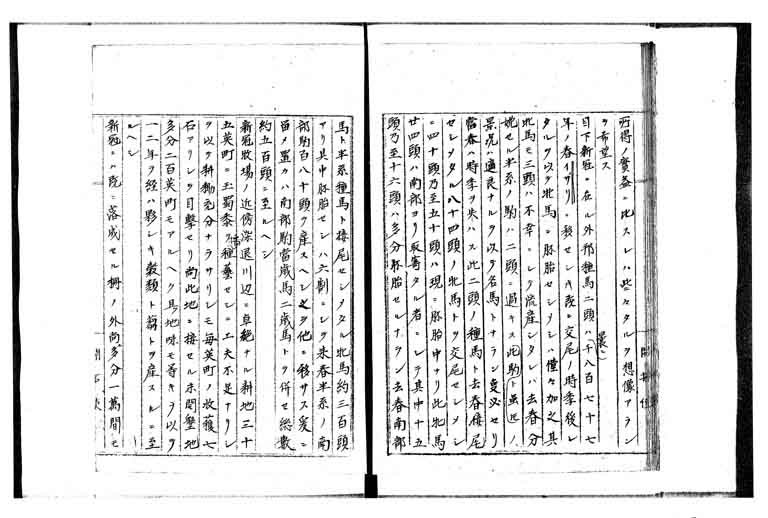 所得ノ實益ニ比スレハ些々タルヲ想像アラン
ヲ希望ス
目下新冠ニ在ル外邦種馬二頭ハ千八百七十七
年ノ春ニ移セシキ既ニ交尾ノ時季後レ
タルヲ以テ牝馬ニ胚胎セシメシハ僅々加之其
牝馬モ三頭ハ不幸ニシテ流産シタレハ去春分
娩セル半系ノ駒ハ二頭ニ過キス此駒ト虽𪜈ノ
景況ハ適良ナルヲ以テ名馬トナラン夏必セリ
當春ハ時季ヲ失ハス此二頭ノ種馬ト去春接尾
セシメタル八十四頭ノ牝馬トヲ交尾セシメシ
ニ四十頭乃至五十頭ハ現ニ胚胎中ナリ此牝馬
廿四頭ハ南部ヨリ取寄タル者ニシテ其中十五
頭乃至十六頭ハ多分胚胎セルナラン去春南部
馬ト半系種馬ト接尾セシメタル牝馬約三百頭
アリ其中胚胎セシハ六割ニシテ来春半系ノ南
部駒百八十頭ヲ産スヘシ之ヲ他ニ移サス爰ニ
留メ置カハ南部駒當歳馬二歳馬トヲ併セ総数
約五百頭ニ至ルヘシ
新冠牧場ノ近傍深退川辺ニ卓絶ナル耕地三十
五英町ニ玉蜀黍ヲ種藝セシニ工夫不足ナリシ
ヲ以テ耕鋤充分ナラサリシモ毎英町ノ收穫七
石アリシヲ目撃セリ尚此地ニ接セル未開墾地
多分二百英町モアルヘク具地味モ等キヲ以テ
一二年ヲ経ハ夥シキ穀類ト藁トヲ産スルニ至
ルヘシ
新冠ニハ既ニ落成セル柵ノ外尚多分一萬間モ